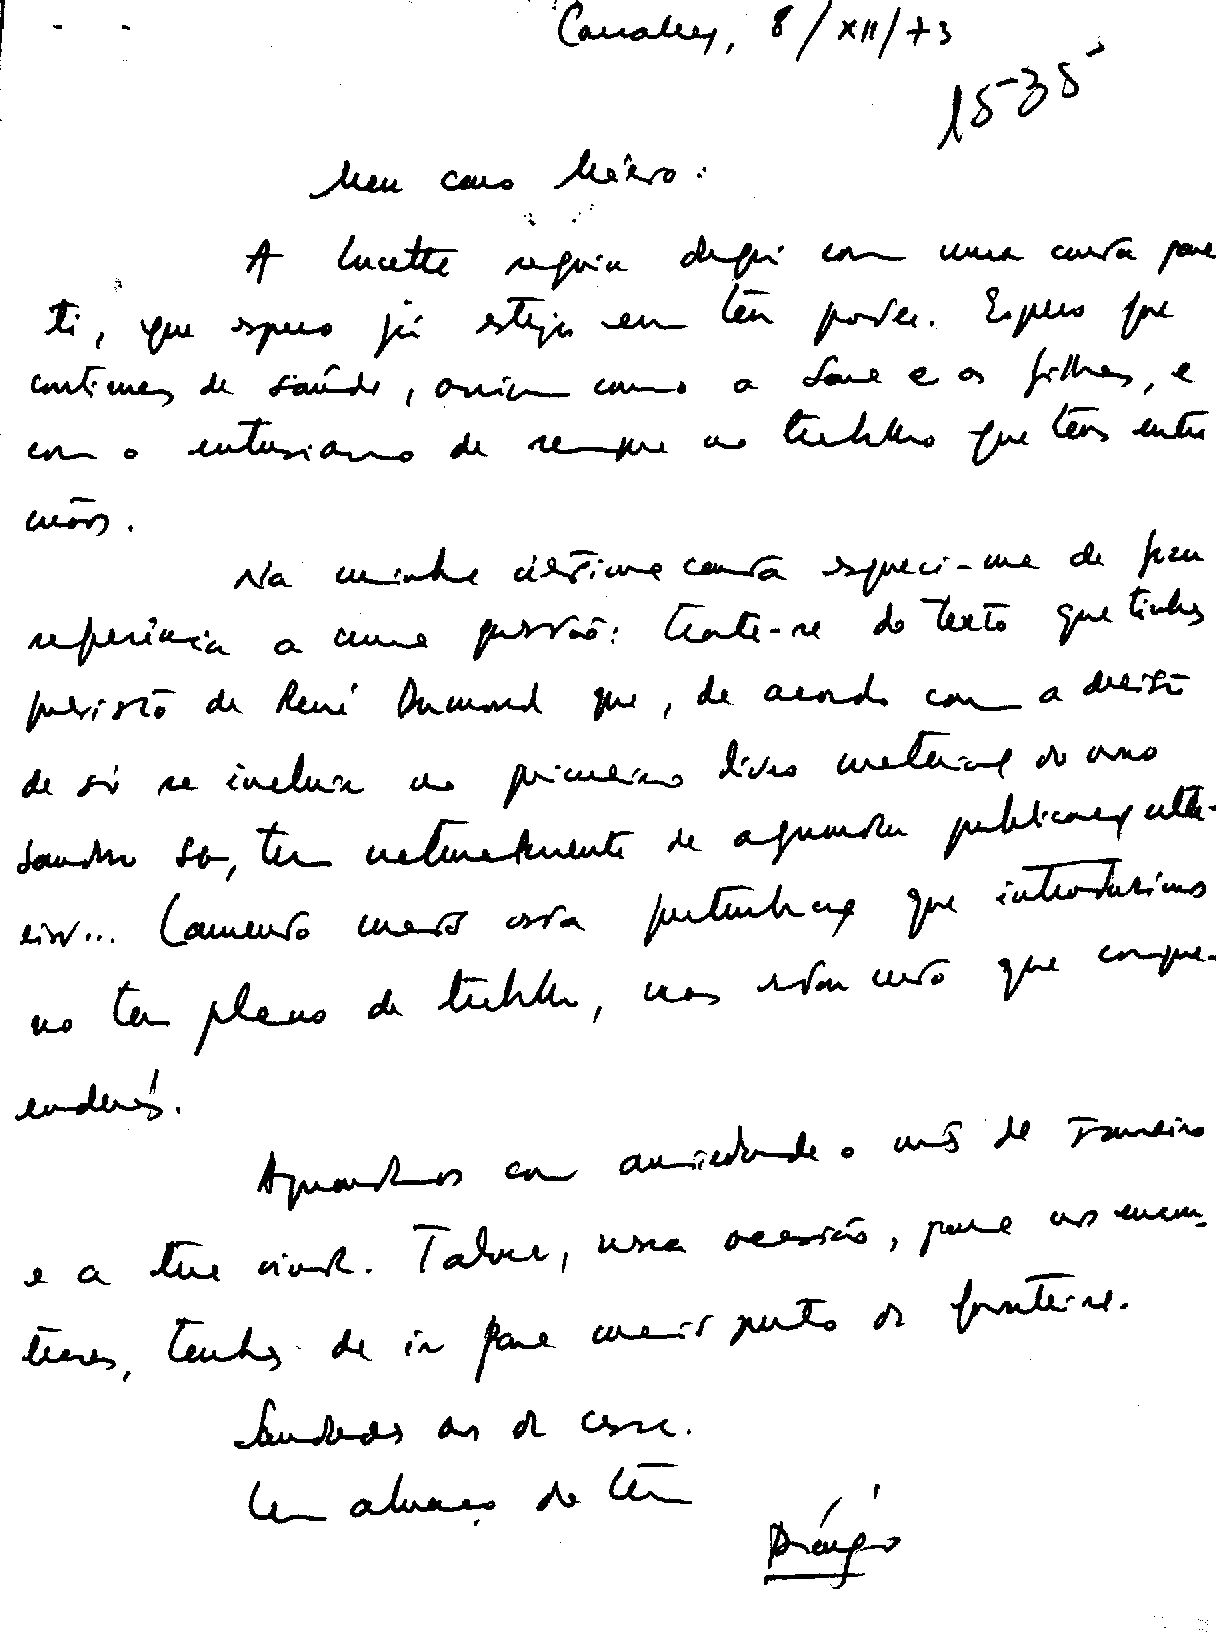 Conakry, 8/XII/73
1535
Meu caro Mário:
A Lucette seguiu daqui com uma carta para
ti, que espero já esteja em teu poder. Espero que
continues de saúde, assim como a Sara e os filhos, e
com o entusiasmo de sempre no trabalho que tens entre
mãos.
Na minha última carta esqueci-me de fazer
referência a uma questão: trata-se do texto que tinhas
previsto de René Dumond que, de acordo com a decisão
de só se incluir no primeiro livro material do nosso
saudoso, tem naturalmente de aguardar publicação ulte-
rior... Lamento muito esta perturbação que introduzimos
no teu plano de trabalho, mas estou certo que compre-
enderás.
Aguardamos com ansiedade o mês de Janeiro
e a tua vinda. Talvez, nessa ocasião, para nos encon-
trares, tenhas de ir para mais perto da fronteira.
Saudades aos de casa.
Um abraço do teu